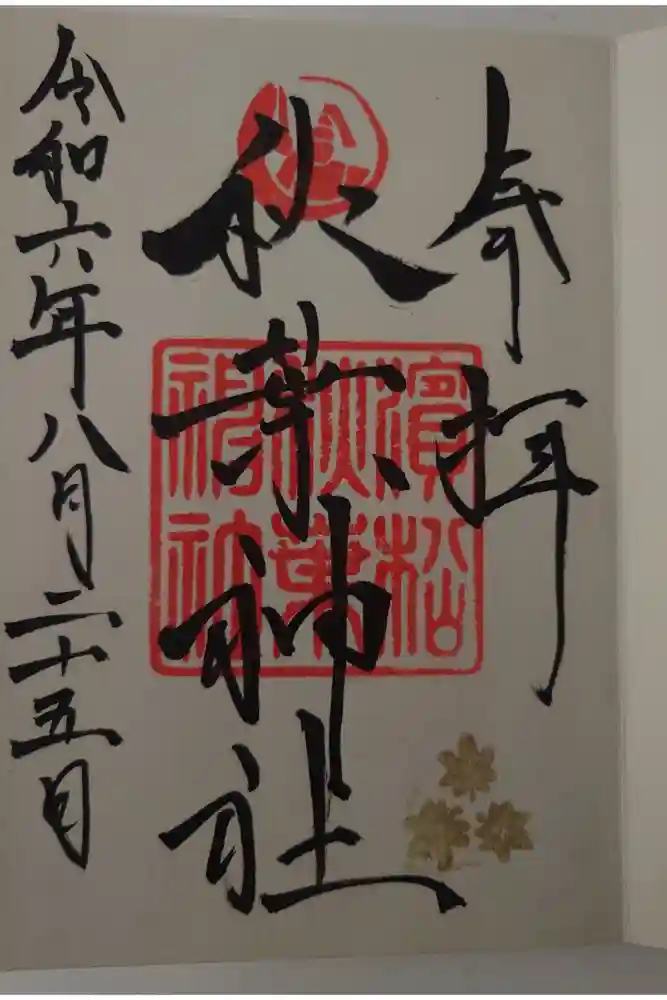 奉拝
秋葉神社
濱松
秋葉
神社
令和六年八月二十五日